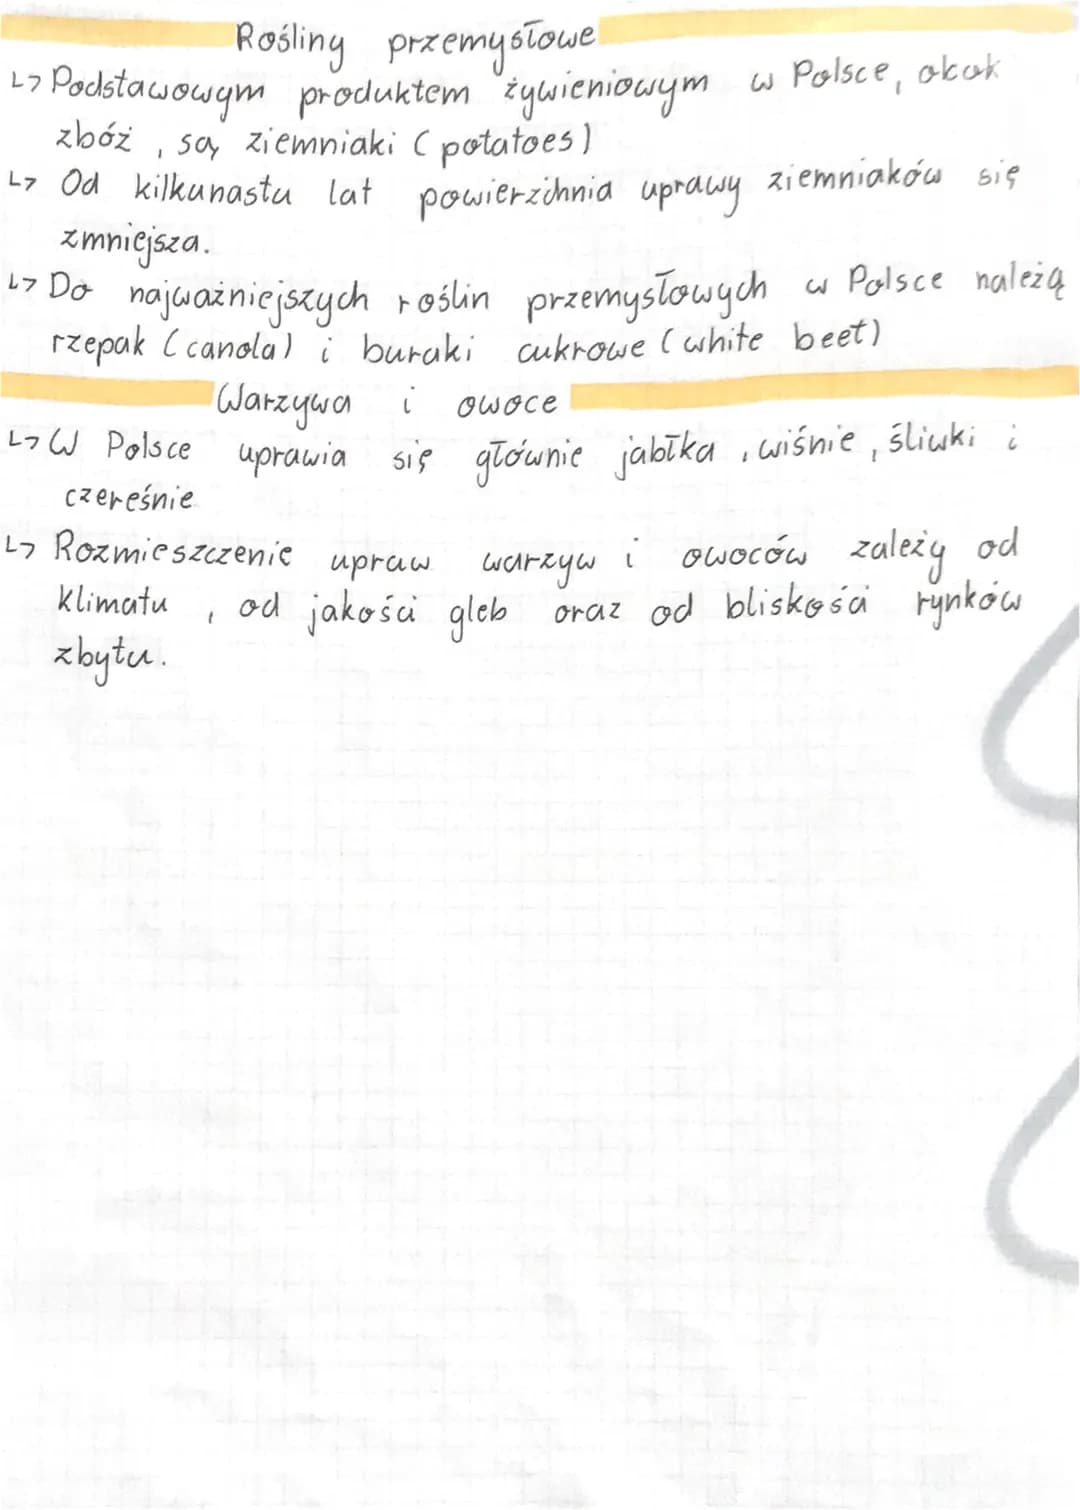 Rośliny przemysłowe
↳ Podstawowym produktem żywieniowym w Polsce, obok
zbóż, są ziemniaki (potatoes)
↳ Od kilkunastu lat powierzchnia uprawy ziemniaków się
zmniejsza.
↳ Do najważniejszych roślin przemysłowych w Polsce należą
rzepak (canola) i buraki cukrowe (white beet)
Warzywa i owoce
↳ W Polsce uprawia się głównie jabłka, wiśnie, śliwki i
czereśnie
↳ Rozmieszczenie upraw warzyw i owoców zależy od
klimatu, od jakości gleb oraz od bliskości rynków
zbytu.